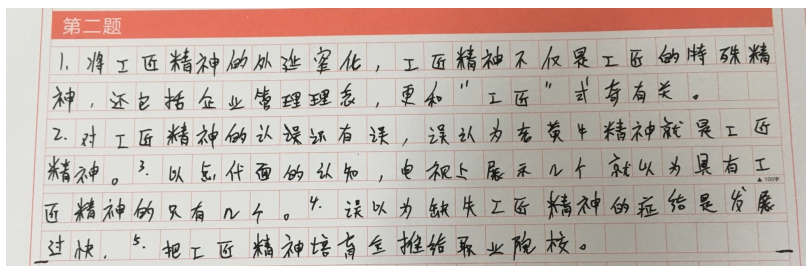 第二题
1. 将工匠精神的外延窄化，工匠精神不仅是工匠的特殊精
神，还包括企业管理理念，更和"工匠"式有关。
2. 对工匠精神的认误还有误，误认为老黄牛精神就是工匠
精神。3. 以点代面的认知，电视上展示几个就以为具有工
▲100字
匠精神的只有几个。4. 误以为缺失工匠精神的症结是发展
过快，5. 把工匠精神培育全推给职业院校。